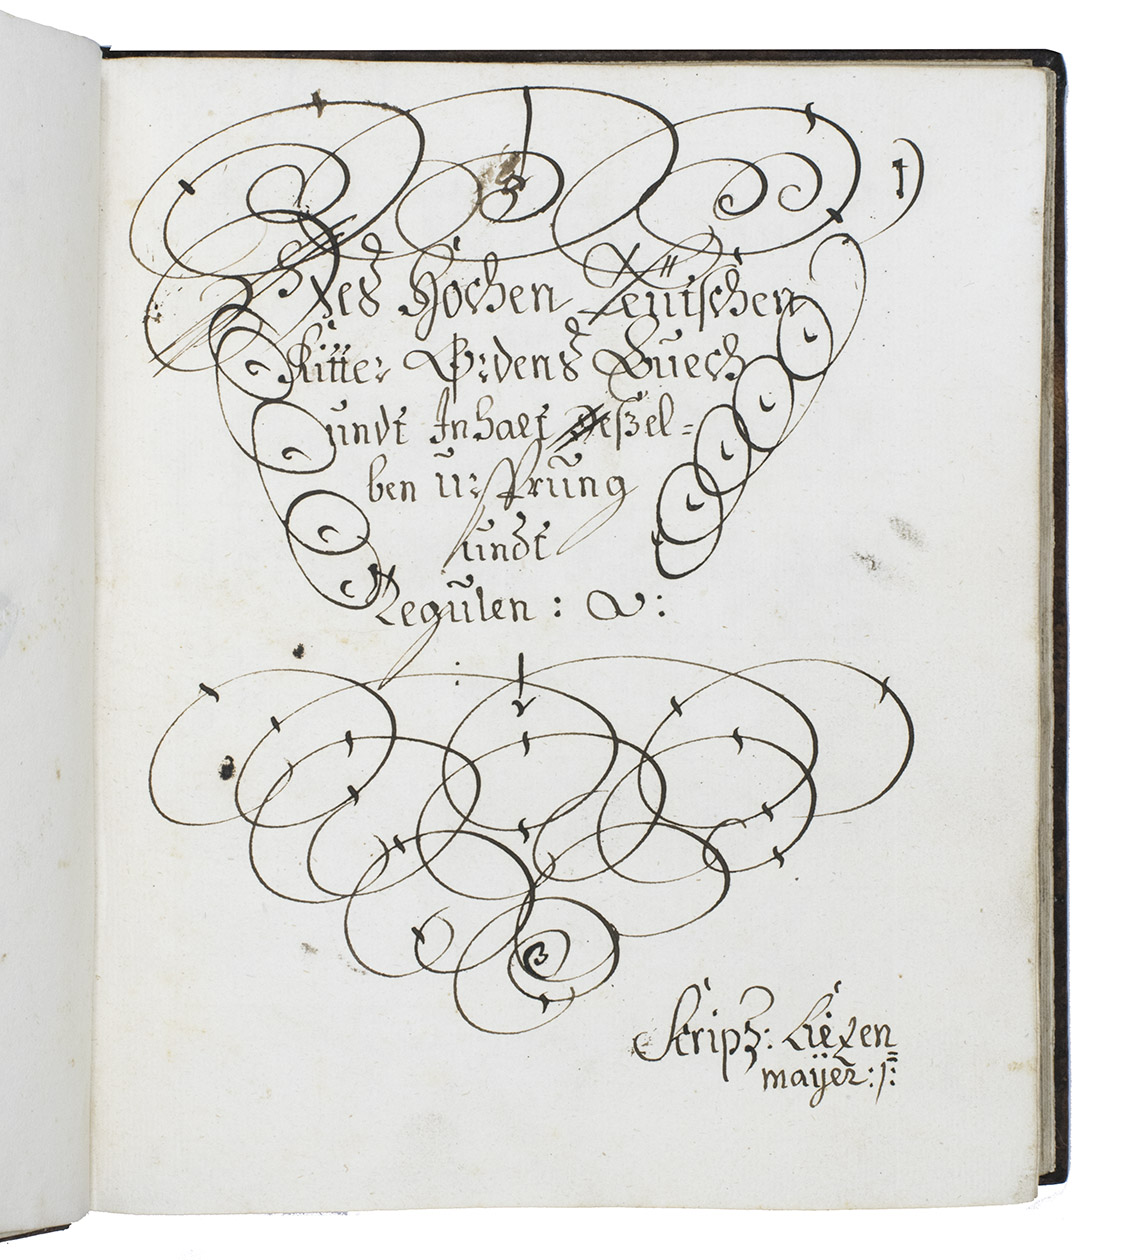 Des Hochen Teütschen
Ritter Ordens Buech
undt Inhalt deßel=
ben ūrsprūng
undt
Regūlen :
Scrips: Liexen
maÿer: